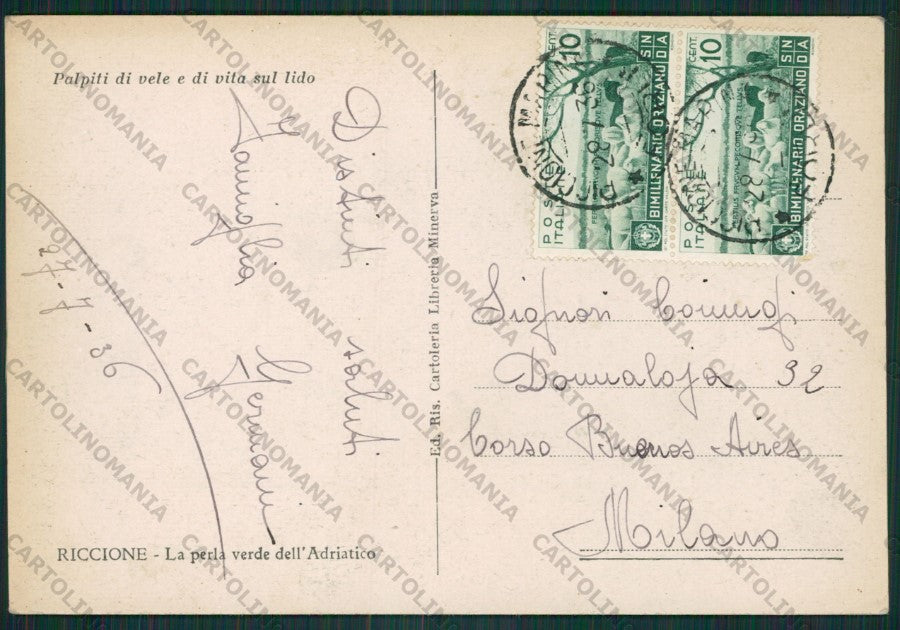 Palpiti di vele e di vita sul lido
Distinti saluti
Famiglia Germani
27-7-36
RICCIONE - La perla verde dell'Adriatico
Ed. Ris. Cartoleria Libreria Minerva
10 CENT.
POSTE ITALIANE
BIMILLENARIO ORAZIANO
10 CENT.
POSTE ITALIANE
BIMILLENARIO ORAZIANO
RICCIONE MARINA
28.7.36
RICCIONE MARINA
28.7.36
Signori
Domaloja 32
Corso Buenos Aires
Milano
CARTOLINOMANIA